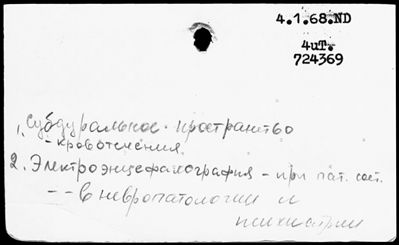 4.1.68.ND
4иТ.
724369
1. Субдуральное пространство
- кровотечения
2. Электроэнцефалография - при пат. сост.
-- в невропатологии и
психиатрии